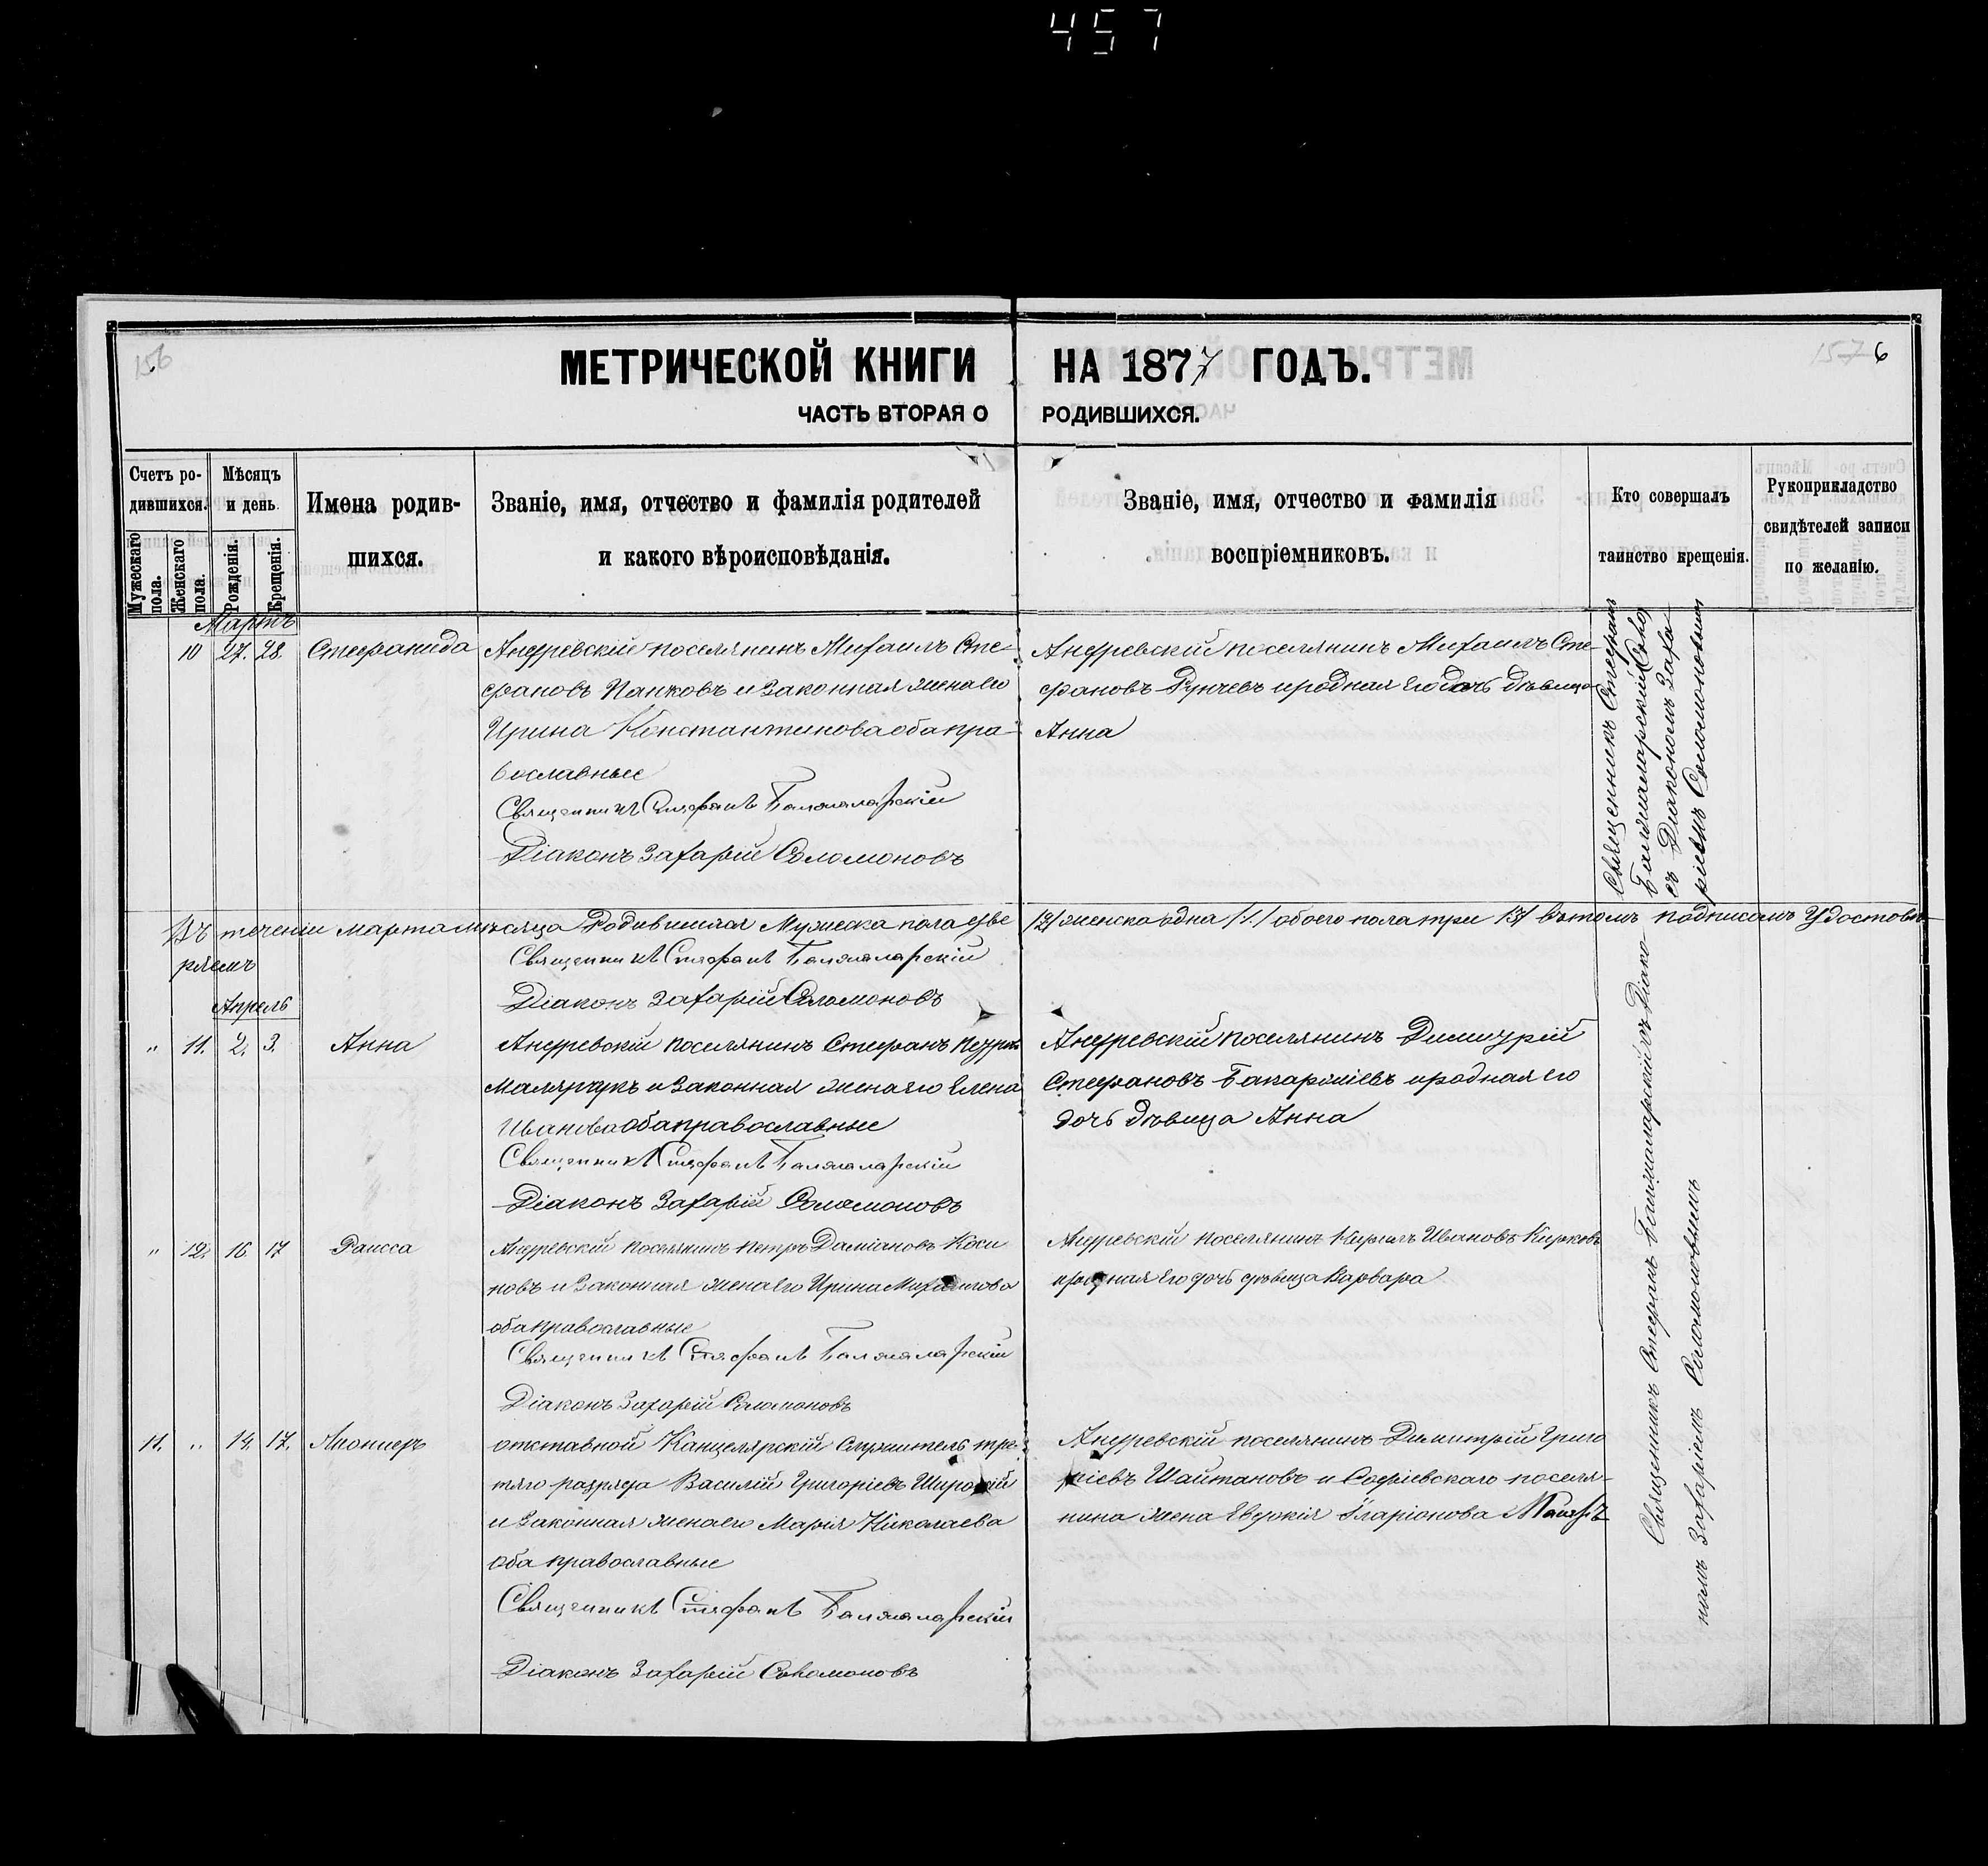 457
156
МЕТРИЧЕСКОЙ КНИГИ НА 1877 ГОДЪ.
1576
ЧАСТЬ ВТОРАЯ О РОДИВШИХСЯ.
Счетъ ро-
дившихся.
Мужескаго пола.
Женскаго пола.
Мѣсяцъ
и день.
Рожденія.
Крещенія.
Имена родив-
шихся.
Званіе, имя, отчество и фамилія родителей
и какого вѣроисповѣданія.
Званіе, имя, отчество и фамилія
воспріемниковъ.
Кто совершалъ
таинство крещенія.
Рукоприкладство
свидѣтелей записи
по желанію.
Мартъ
10 27. 28. Стефанида
Андревскій поселянинъ Михаилъ Сте-
фановъ Панковъ и законная жена его
Ирина Константинова оба пра-
вославные
Священникъ Стефанъ Балжаларскій
Діаконъ Захарій Соломоновъ
Андревскій поселянинъ Михаилъ Сте-
фановъ Рунчевъ и родная его дочь дѣвица
Анна
Священникъ Стефанъ
Балжаларскій
съ Діакономъ Заха
ріемъ Соломоновымъ
Въ теченіи марта мѣсяца Родившихся Мужеска пола две /2/ женска одна /1/ обоего пола три /3/ въ томъ подписомъ Удостовѣ-
ряемъ
Священникъ Стефанъ Балжаларскій
Діаконъ Захарій Соломоновъ
Апрель
" 11. 2. 3. Анна
Андревскій поселянинъ Стефанъ
Малярчукъ и законная жена его Елена
Иванова оба православные
Священникъ Стефанъ Балжаларскій
Діаконъ Захарій Соломоновъ
Андревскій поселянинъ Димитрій
Стефановъ и родная его
дочь дѣвица Анна
" 12. 16 17 Раисса
Андревскій поселянинъ Петръ Даміановъ Коси
новъ и законная жена его Ирина Михаилова
оба православные
Священникъ Стефанъ Балжаларскій
Діаконъ Захарій Соломоновъ
Андревскій поселянинъ Кирилъ Ивановъ Кирковъ
и родная его дочь дѣвица Варвара
11. " 14. 17.
отставной Канцелярскій Служитель тре-
тяго разряда Василій Григоріевъ Широкій
и законная жена его Марія Николаева
оба православные
Священникъ Стефанъ Балжаларскій
Діаконъ Захарій Соломоновъ
Андревскій поселянинъ Димитрій Григо
ріевъ Шайтановъ и Софіевскаго поселя-
нина жена Евдокія Иларіонова
Священникъ Стефанъ Балжаларскій съ Діако-
номъ Захаріемъ Соломоновымъ